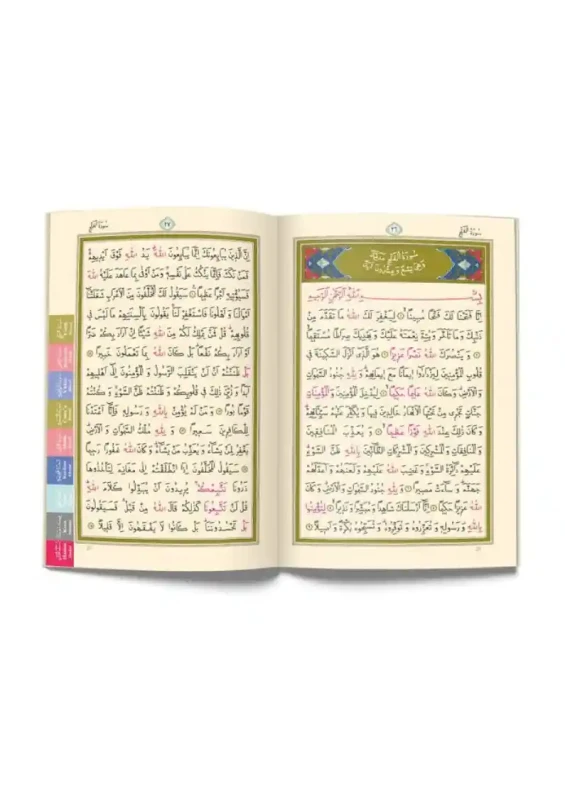 سُورَةُ الْفَتْحِ
٢٦
سُورَةُ الْفَتْحِ مَدَنِيَّةٌ
وَهِيَ تِسْعٌ وَعِشْرُونَ اٰيَةً
بِسْمِ اللّٰهِ الرَّحْمٰنِ الرَّحِيمِ
اِنَّا فَتَحْنَا لَكَ فَتْحًا مُبِينًا ۝ لِيَغْفِرَ لَكَ اللّٰهُ مَا تَقَدَّمَ مِنْ
ذَنْبِكَ وَمَا تَاَخَّرَ وَيُتِمَّ نِعْمَتَهُ عَلَيْكَ وَيَهْدِيَكَ صِرَاطًا مُسْتَقِيمًا
۝ وَيَنْصُرَكَ اللّٰهُ نَصْرًا عَزِيزًا ۝ هُوَ الَّذِي اَنْزَلَ السَّكِينَةَ فِي
قُلُوبِ الْمُؤْمِنِينَ لِيَزْدَادُوا اِيمَانًا مَعَ اِيمَانِهِمْ وَلِلّٰهِ جُنُودُ السَّمٰوَاتِ
وَالْاَرْضِ وَكَانَ اللّٰهُ عَلِيمًا حَكِيمًا ۝ لِيُدْخِلَ الْمُؤْمِنِينَ وَالْمُؤْمِنَاتِ
جَنَّاتٍ تَجْرِي مِنْ تَحْتِهَا الْاَنْهَارُ خَالِدِينَ فِيهَا وَيُكَفِّرَ عَنْهُمْ سَيِّـَٔاتِهِمْ
وَكَانَ ذٰلِكَ عِنْدَ اللّٰهِ فَوْزًا عَظِيمًا ۝ وَيُعَذِّبَ الْمُنَافِقِينَ
وَالْمُنَافِقَاتِ وَالْمُشْرِكِينَ وَالْمُشْرِكَاتِ الظَّانِّينَ بِاللّٰهِ ظَنَّ السَّوْءِ
عَلَيْهِمْ دَائِرَةُ السَّوْءِ وَغَضِبَ اللّٰهُ عَلَيْهِمْ وَلَعَنَهُمْ وَاَعَدَّ لَهُمْ
جَهَنَّمَ وَسَاءَتْ مَصِيرًا ۝ وَلِلّٰهِ جُنُودُ السَّمٰوَاتِ وَالْاَرْضِ وَكَانَ
اللّٰهُ عَزِيزًا حَكِيمًا ۝ اِنَّا اَرْسَلْنَاكَ شَاهِدًا وَمُبَشِّرًا وَنَذِيرًا ۝ لِتُؤْمِنُوا
بِاللّٰهِ وَرَسُولِهِ وَتُعَزِّرُوهُ وَتُوَقِّرُوهُ وَتُسَبِّحُوهُ بُكْرَةً وَاَصِيلًا ۝
سُورَةُ الْفَتْحِ
٢٧
اِنَّ الَّذِينَ يُبَايِعُونَكَ اِنَّمَا يُبَايِعُونَ اللّٰهَ يَدُ اللّٰهِ فَوْقَ اَيْدِيهِمْ
فَمَنْ نَكَثَ فَاِنَّمَا يَنْكُثُ عَلٰى نَفْسِهِ وَمَنْ اَوْفٰى بِمَا عَاهَدَ عَلَيْهُ اللّٰهَ
فَسَيُؤْتِيهِ اَجْرًا عَظِيمًا ۝ سَيَقُولُ لَكَ الْمُخَلَّفُونَ مِنَ الْاَعْرَابِ شَغَلَتْنَا
اَمْوَالُنَا وَاَهْلُونَا فَاسْتَغْفِرْ لَنَا يَقُولُونَ بِاَلْسِنَتِهِمْ مَا لَيْسَ فِي
قُلُوبِهِمْ قُلْ فَمَنْ يَمْلِكُ لَكُمْ مِنَ اللّٰهِ شَيْـًٔا اِنْ اَرَادَ بِكُمْ ضَرًّا
اَوْ اَرَادَ بِكُمْ نَفْعًا بَلْ كَانَ اللّٰهُ بِمَا تَعْمَلُونَ خَبِيرًا ۝
بَلْ ظَنَنْتُمْ اَنْ لَنْ يَنْقَلِبَ الرَّسُولُ وَالْمُؤْمِنُونَ اِلٰى اَهْلِيهِمْ
اَبَدًا وَزُيِّنَ ذٰلِكَ فِي قُلُوبِكُمْ وَظَنَنْتُمْ ظَنَّ السَّوْءِ وَكُنْتُمْ
قَوْمًا بُورًا ۝ وَمَنْ لَمْ يُؤْمِنْ بِاللّٰهِ وَرَسُولِهِ فَاِنَّا اَعْتَدْنَا
لِلْكَافِرِينَ سَعِيرًا ۝ وَلِلّٰهِ مُلْكُ السَّمٰوَاتِ وَالْاَرْضِ
يَغْفِرُ لِمَنْ يَشَاءُ وَيُعَذِّبُ مَنْ يَشَاءُ وَكَانَ اللّٰهُ غَفُورًا رَحِيمًا
۝ سَيَقُولُ الْمُخَلَّفُونَ اِذَا انْطَلَقْتُمْ اِلٰى مَغَانِمَ لِتَأْخُذُوهَا
ذَرُونَا نَتَّبِعْكُمْ يُرِيدُونَ اَنْ يُبَدِّلُوا كَلَامَ اللّٰهِ
قُلْ لَنْ تَتَّبِعُونَا كَذٰلِكُمْ قَالَ اللّٰهُ مِنْ قَبْلُ فَسَيَقُولُونَ
بَلْ تَحْسُدُونَنَا بَلْ كَانُوا لَا يَفْقَهُونَ اِلَّا قَلِيلًا ۝